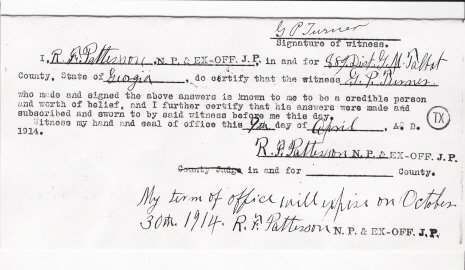 G P Turner
Signature of witness.
I, R. F. Patterson, N.P. & EX-OFF. J.P. in and for 889 Dist. G.M. Talbot
County, State of Georgia, do certify that the witness G. P. Turner
who made and signed the above answers is known to me to be a credible person
and worth of belief, and I further certify that his answers were made and
subscribed and sworn to by said witness before me this day.
TX
Witness my hand and seal of office this 9th day of April, A. D.
1914.
R. F. Patterson N.P. & EX-OFF. J.P.
County Judge, in and for County.
My term of office will expire on October
30th. 1914. R. F. Patterson N.P. & EX-OFF. J.P.